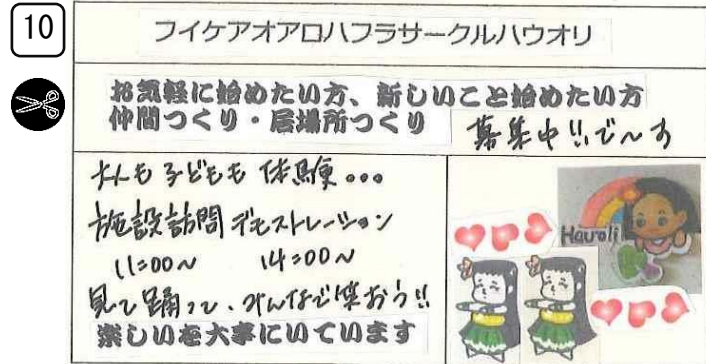 10
フイケアオアロハフラサークルハウオリ
お気軽に始めたい方、新しいこと始めたい方
仲間つくり・居場所つくり 募集中!!で〜す
大人も子どもも 体験...
施設訪問 デモストレーション
11:00〜 14:00〜
見て踊って、みんなで笑おう!!
楽しいを大事にいています
Hauoli